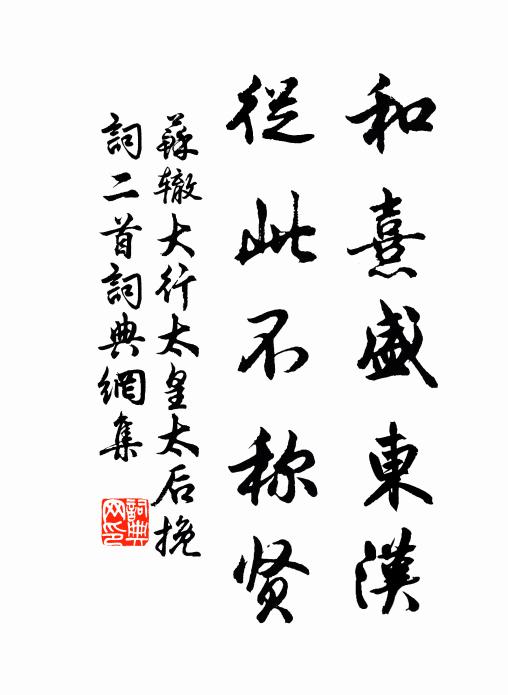 和熹盛東漢
從此不称贤
蘇辙大行太皇太后挽
詞二首詞典網集
詞典网印